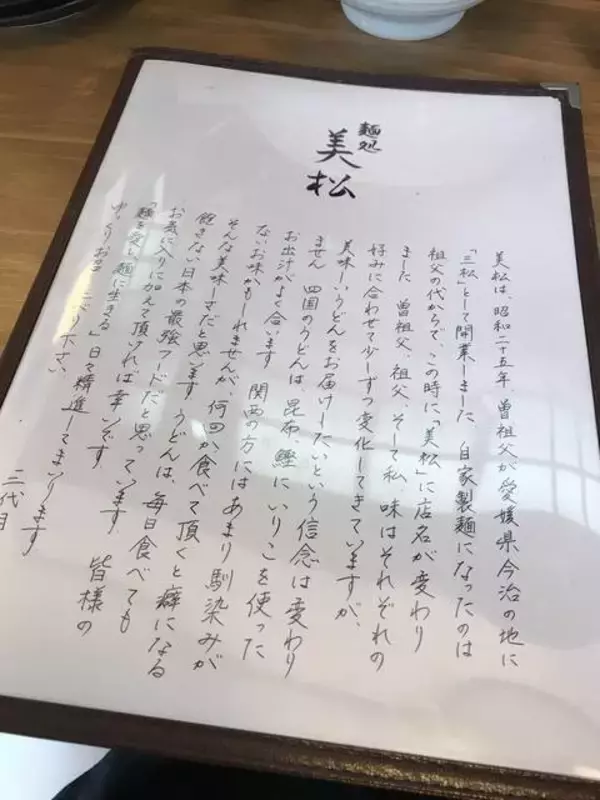 麺処
美松
美松は、昭和二十五年、曽祖父が愛媛県今治の地に
「三松」として開業しました 自家製麺になったのは
祖父の代からで、この時に「美松」に店名が変わり
ました 曽祖父、祖父、そして私 味はそれぞれの
好みに合わせて少しずつ変化してきていますが、
美味しいうどんをお届けしたいという信念は変わり
ません 四国のうどんは、昆布、鰹にいりこを使った
お出汁がよく合います 関西の方にはあまり馴染みが
ないお味かもしれませんが、何回か食べて頂くと癖になる
そんな美味しさだと思います うどんは、毎日食べても
飽きない日本の最強フードだと思っています 皆様の
お気に入りに加えて頂ければ幸いです
「麺を愛し麺に生きる」日々精進してまいります
ゆっくりお召し 下さい
三代目